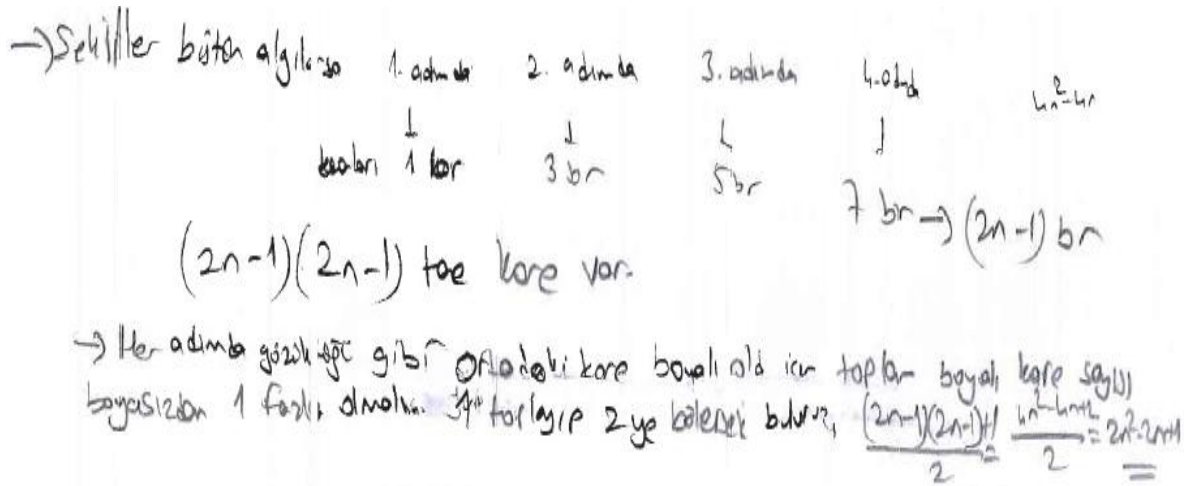 → Şekiller bütün algılırsa 1. adımda 2. adımda 3. adımda 4. adımda 4n²-4n
↓ ↓ ↓ ↓
kenarı 1 br 3 br 5 br 7 br → (2n-1) br
(2n-1)(2n-1) tae kare var.
→ Her adımda gözüktüğü gibi ortadaki kare boyalı old için toplam boyalı kare sayısı
boyasızdan 1 fazla olmalı. toplayıp 2 ye bölerek buluruz, (2n-1)(2n-1)+1 / 2 = 4n²-4n+2 / 2 = 2n²-2n+1